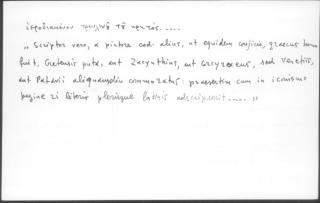 „ Scriptor vero, a pictore cod. alius, ut equidem conjicio, graecus homo
fuit, Cretensis puta, aut Zacynthius, aut Corcyraeus, sed Venetiis,
aut Patavii aliquamdiu commoratus: praesertim cum in iconismo
paginae 21 litteris plerisque latinis adscripserit..... "